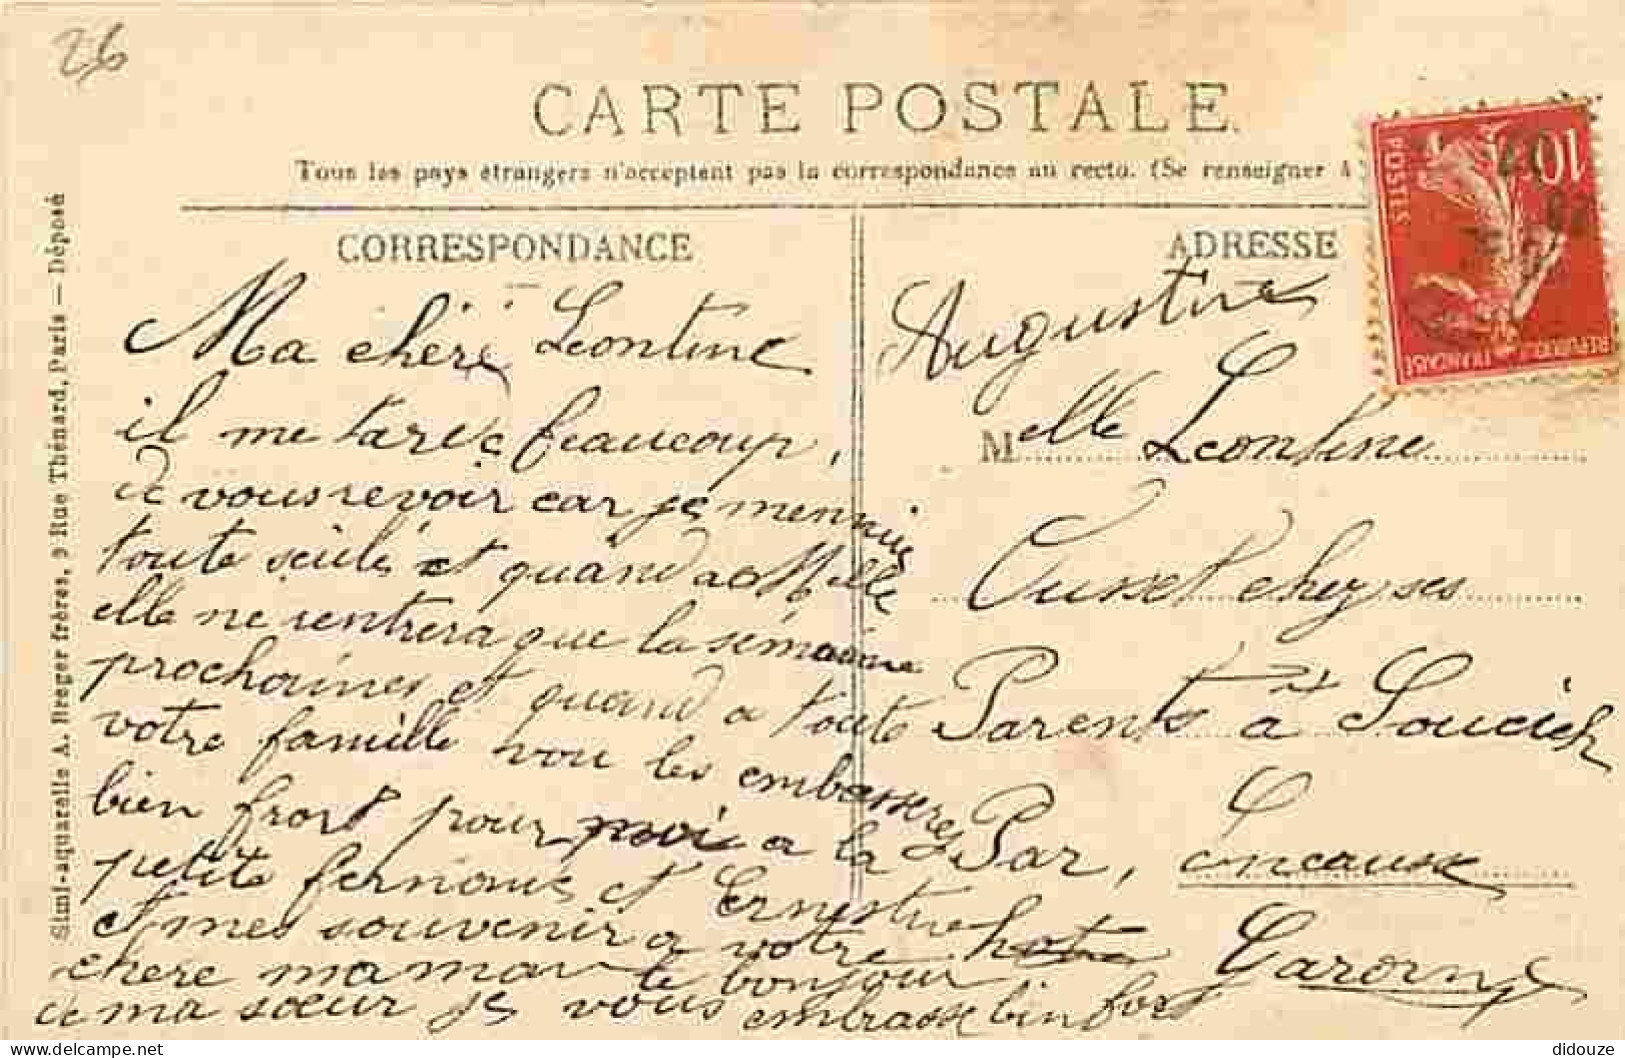 26
CARTE POSTALE
Tous les pays étrangers n'acceptent pas la correspondance au recto. (Se renseigner à
CORRESPONDANCE
Ma chère Leontine
il me tarde beaucoup,
de vous revoir car je mennuie
toute seule et quand a Melle
elle ne rentrera que la semaine
prochaines et quand a toute
votre famille vou les embasseres
bien fort pour moi a la
petite fernande et Ernestine
et mes souvenir a votre
chere maman le bonjour
a ma sœur je vous embrasse bin fort
ADRESSE
Augustine
Melle Leontine
Cusset chez ses
Parents à
Par,
Garonne
10
POSTES
REPUBLIQUE FRANÇAISE
Simi-aquarelle A. Breger frères, 9 Rue Thénard, Paris — Déposé
didouze